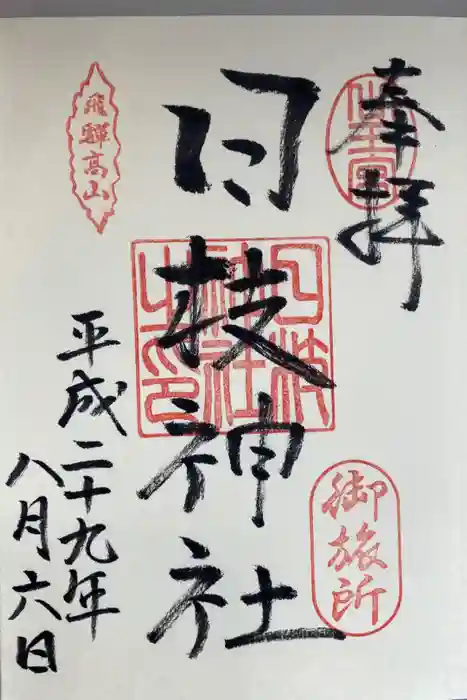 奉拝
日枝神社
平成二十九年
八月六日
飛騨高山
日枝
神社
之印
御旅所